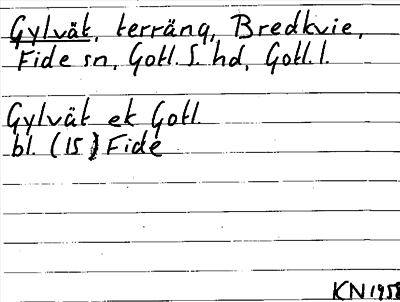 Gylvät, terräng, Bredkvie,
Fide sn, Gotl. S. hd, Gotl. l.
Gylvät ek Gotl.
bl. (15) Fide
KN 1958